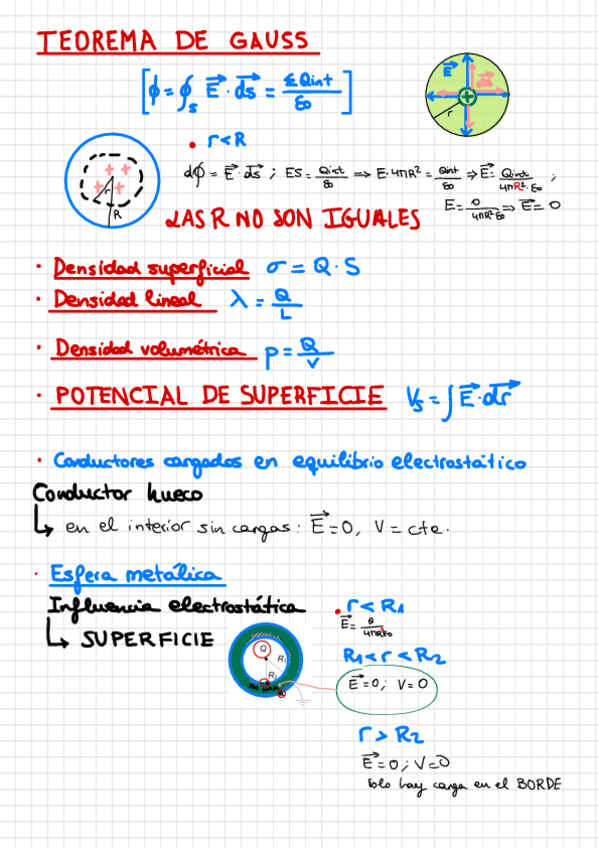 TEOREMA DE GAUSS
[ϕ = ∮s E⃗ · ds⃗ = ΣQint/ε0]
E⃗
ds⃗
r
+
• r < R
dϕ = E⃗ · ds⃗ ; ES = Qint/ε0 ⇒ E·4πR² = Qint/ε0 ⇒ E⃗ = Qint/4πR²·ε0 ;
E = 0/4πR²ε0 ⇒ E⃗ = 0
+ + + +
r
R
LAS R NO SON IGUALES
· Densidad superficial σ = Q · S
· Densidad lineal λ = Q/L
· Densidad volumétrica p = Q/V
· POTENCIAL DE SUPERFICIE Vs = ∫E⃗ · dr⃗
· Conductores cargados en equilibrio electrostático
Conductor hueco
↳ en el interior sin cargas: E⃗ = 0, V = cte.
· Esfera metálica
Influencia electrostática
↳ SUPERFICIE
Q
R1
R2
NO HAY
• r < R1
R1 < r < R2
E⃗ = 0; V = 0
r > R2
E⃗ = 0; V = 0
Solo hay carga en el BORDE